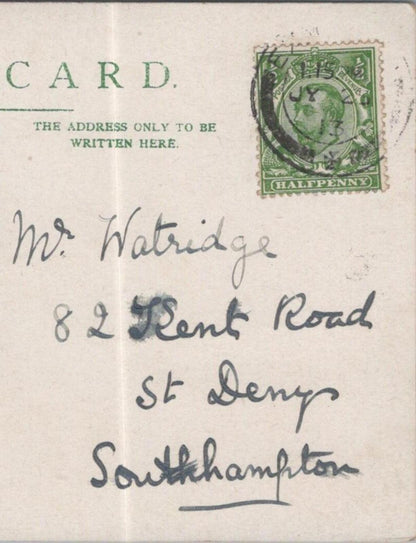 CARD.
THE ADDRESS ONLY TO BE
WRITTEN HERE.
1.15
JY
13
HALFPENNY
Mr Watridge
82 Kent Road
St Denys
Southhampton